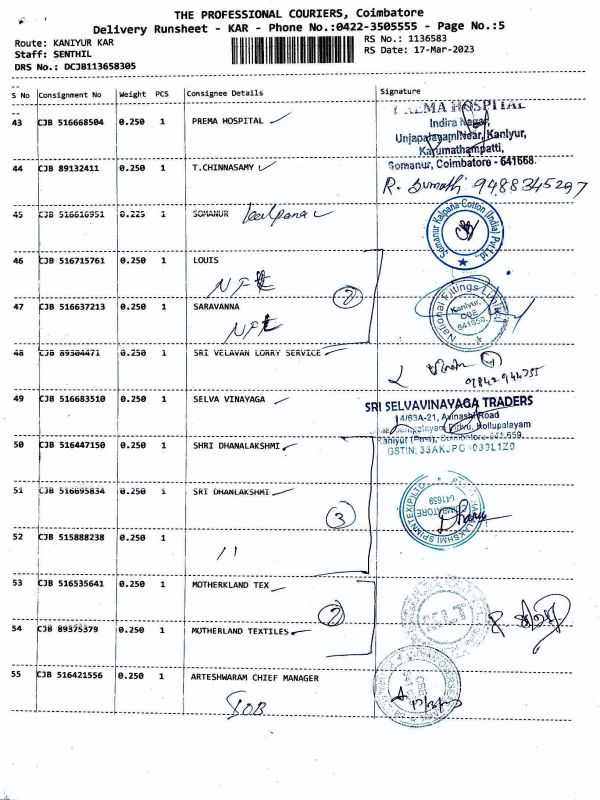 THE PROFESSIONAL COURIERS, Coimbatore
Delivery Runsheet - KAR - Phone No.:0422-3505555 - Page No.:5
Route: KANIYUR KAR
RS No.: 1136583
Staff: SENTHIL
RS Date: 17-Mar-2023
DRS No.: DCJB113658305
S No Consignment No Weight PCS Consignee Details Signature
43 CJB 516668504 0.250 1 PREMA HOSPITAL
PREMA HOSPITAL
Indira Nagar,
Unjapalayam Near, Kaniyur,
Karumathampatti,
Somanur, Coimbatore - 641668
44 CJB 89132411 0.250 1 T.CHINNASAMY
R. Sumathi 9488345297
45 CJB 516616951 0.225 1 SOMANUR kalpana
Somanur Kalpana Cotton (India) Pvt Ltd.,
46 CJB 516715761 0.250 1 LOUIS
NFL
2
47 CJB 516637213 0.250 1 SARAVANNA
NFL
National Fittings Limited
Kaniyur,
CBE
641659.
48 CJB 89304471 0.250 1 SRI VELAVAN LORRY SERVICE
49 CJB 516683510 0.250 1 SELVA VINAYAGA
SRI SELVAVINAYAGA TRADERS
14/63A-21, Avinashi Road
Kollupalayam
Kaniyur (Post), Coimbatore-641 659.
50 CJB 516447150 0.250 1 SHRI DHANALAKSHMI
51 CJB 516695834 0.250 1 SRI DHANLAKSHMI
3
52 CJB 515888238 0.250 1
11
53 CJB 516535641 0.250 1 MOTHERKLAND TEX
2
54 CJB 89375379 0.250 1 MOTHERLAND TEXTILES
55 CJB 516421556 0.250 1 ARTESHWARAM CHIEF MANAGER